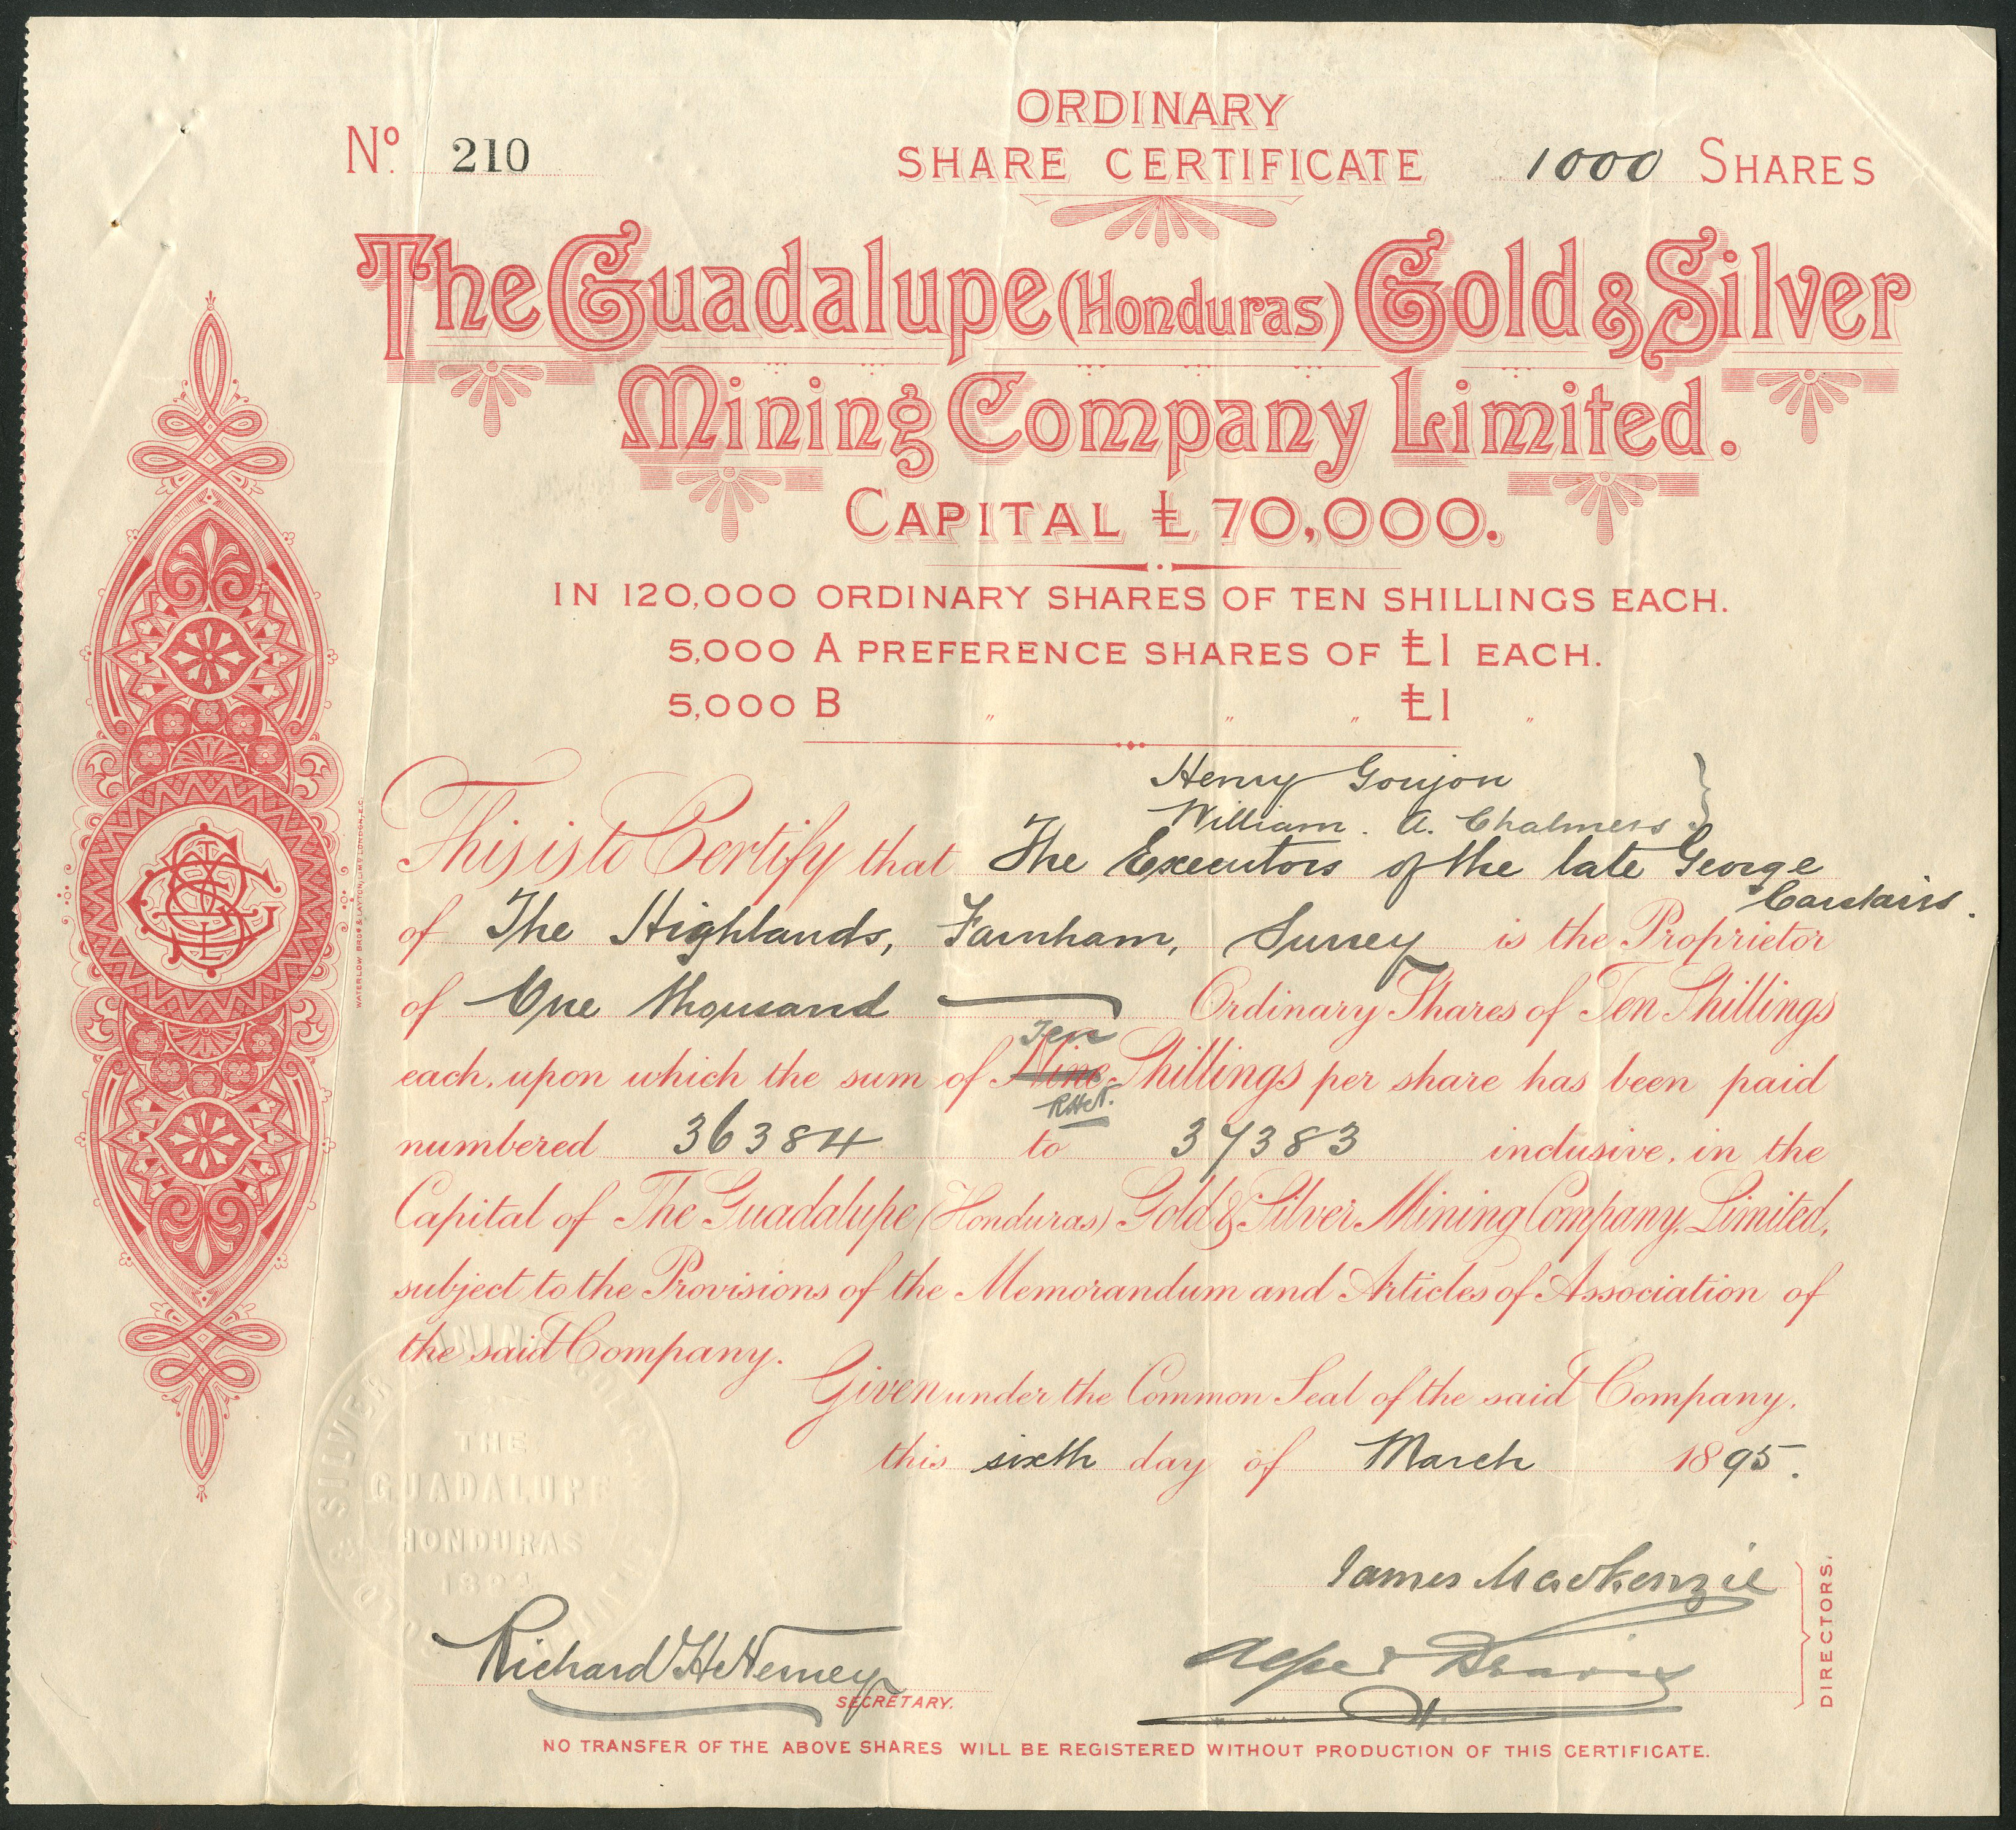 ORDINARY
No. 210 SHARE CERTIFICATE 1000 SHARES
The Guadalupe (Honduras) Gold & Silver
Mining Company Limited.
CAPITAL £70,000.
IN 120,000 ORDINARY SHARES OF TEN SHILLINGS EACH.
5,000 A PREFERENCE SHARES OF £1 EACH.
5,000 B " " " £1 "
Henry Goujon
William. A. Chalmers }
This is to Certify that The Executors of the late George
Carstairs.
of The Highlands, Farnham, Surrey is the Proprietor
of One thousand Ordinary Shares of Ten Shillings
Ten
each, upon which the sum of Nine Shillings per share has been paid
numbered 36384 to 37383 inclusive, in the
Capital of The Guadalupe (Honduras) Gold & Silver Mining Company, Limited,
subject to the Provisions of the Memorandum and Articles of Association of
the said Company.
Given under the Common Seal of the said Company,
this sixth day of March 1895.
THE
GUADALUPE
HONDURAS
1894
GOLD & SILVER MINING CO LIMITED
James Mackenzie
Richard H
SECRETARY.
DIRECTORS.
NO TRANSFER OF THE ABOVE SHARES WILL BE REGISTERED WITHOUT PRODUCTION OF THIS CERTIFICATE.
WATERLOW BROS & LAYTON, LIMD LONDON, E.C.